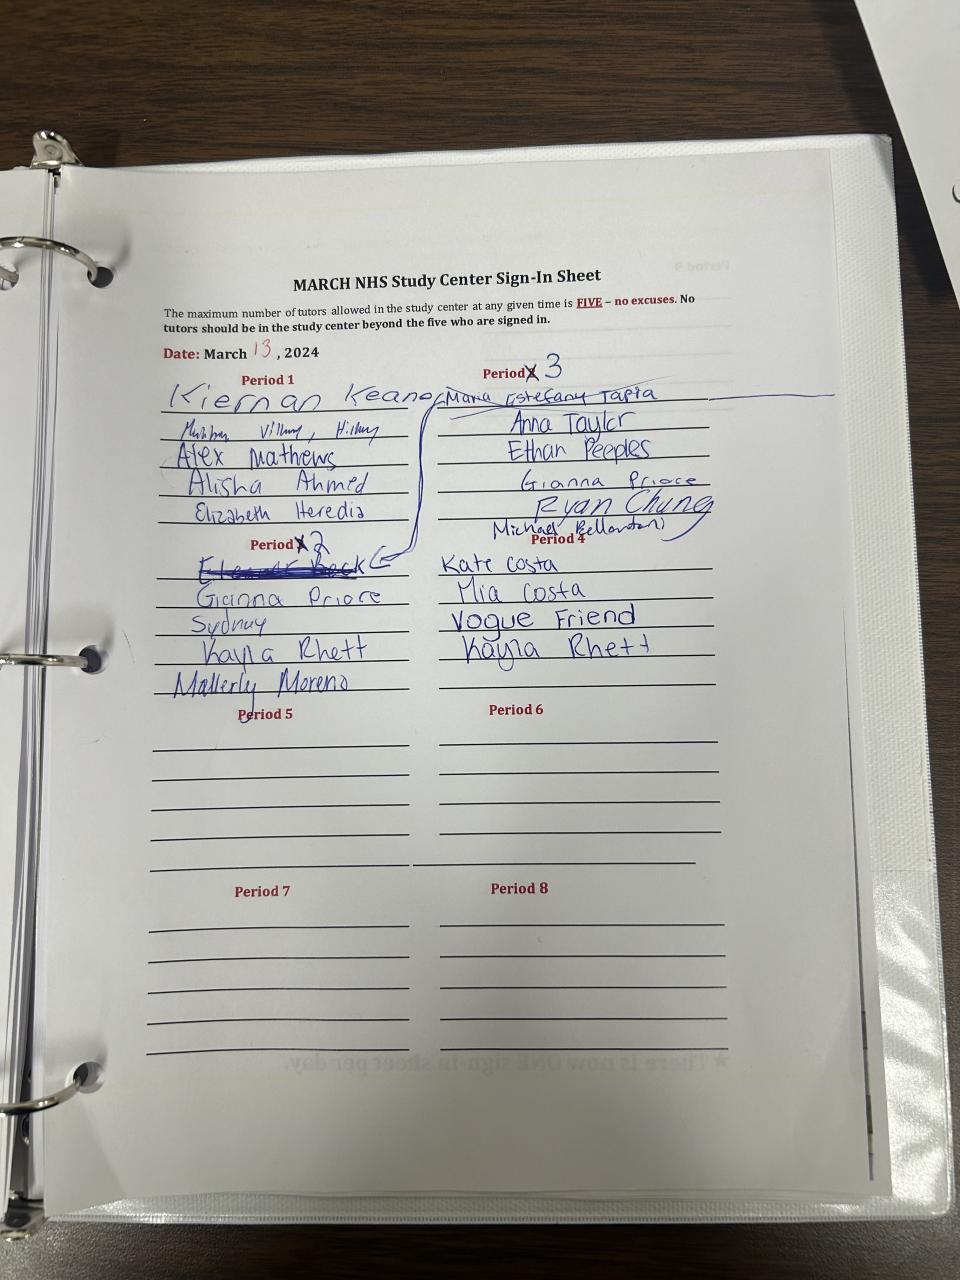 MARCH NHS Study Center Sign-In Sheet
The maximum number of tutors allowed in the study center at any given time is FIVE – no excuses. No
tutors should be in the study center beyond the five who are signed in.
Date: March 13, 2024
Period 1
Kiernan Keane
Alex Mathews
Alisha Ahmed
Elizabeth Heredia
Period 3
Maria Estefany Tapia
Anna Taylor
Ethan Peeples
Gianna Priore
Ryan Chung
Michael Bellantoni
Period 2
Gianna Priore
Sydney
Kayla Rhett
Mallerly Moreno
Period 4
Kate Costa
Mia Costa
Vogue Friend
Kayla Rhett
Period 5
Period 6
Period 7
Period 8
Period 9
★ There is now ONE sign-in sheet per day.